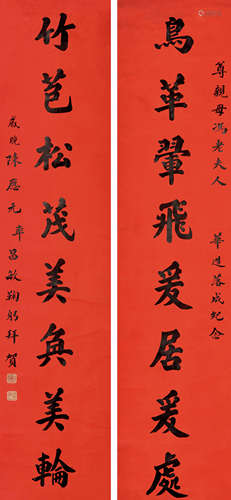 尊親母馮老夫人 華進落成紀念
鳥革翬飛爰居爰處
竹苞松茂美奐美輪
戚晚陳應元率昌敏鞠躬拜賀